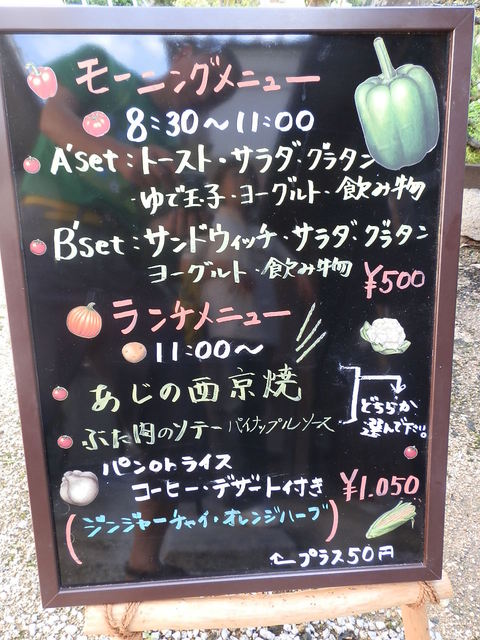 モーニングメニュー
8:30〜11:00
A'set:トースト・サラダ・グラタン
・ゆで玉子・ヨーグルト・飲み物
B'set:サンドウィッチ・サラダ・グラタン
ヨーグルト・飲み物
¥500
ランチメニュー
11:00〜
あじの西京焼
ぶた肉のソテー パイナップルソース
どちらか
選んで下さい。
パンorライス
コーヒー・デザート付き ¥1.050
(ジンジャーチャイ・オレンジハーブ)
←プラス50円